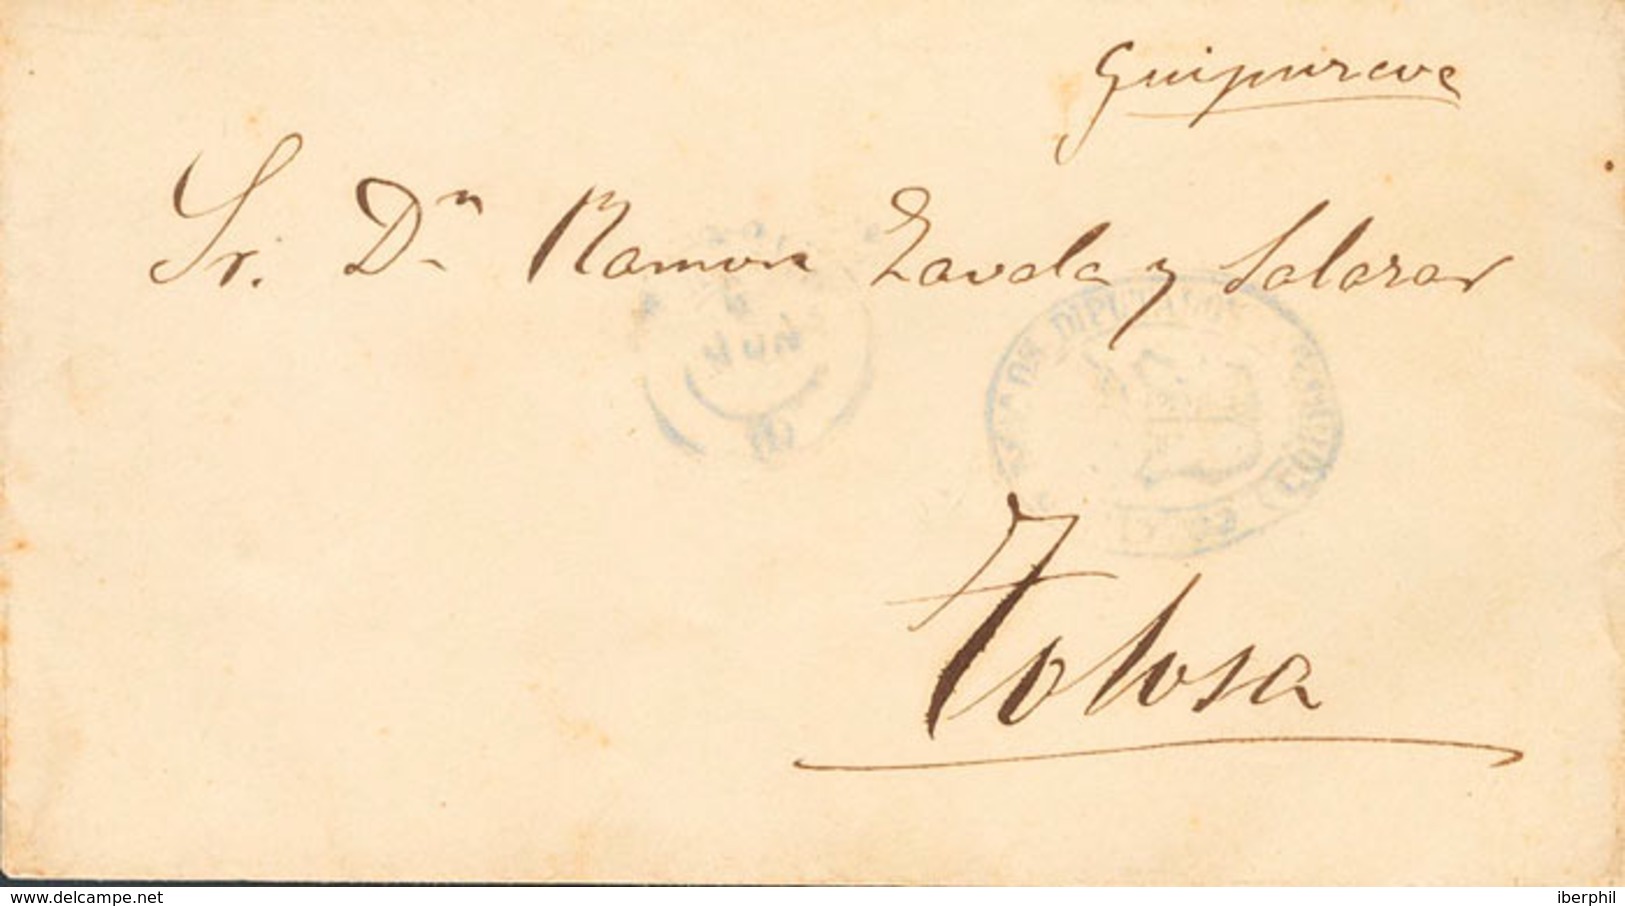 Guipuzcoa
Sr. Dn Ramon Zavala y Salazar
DIPUTACION
Tolosa
delcampe.net
iberphil